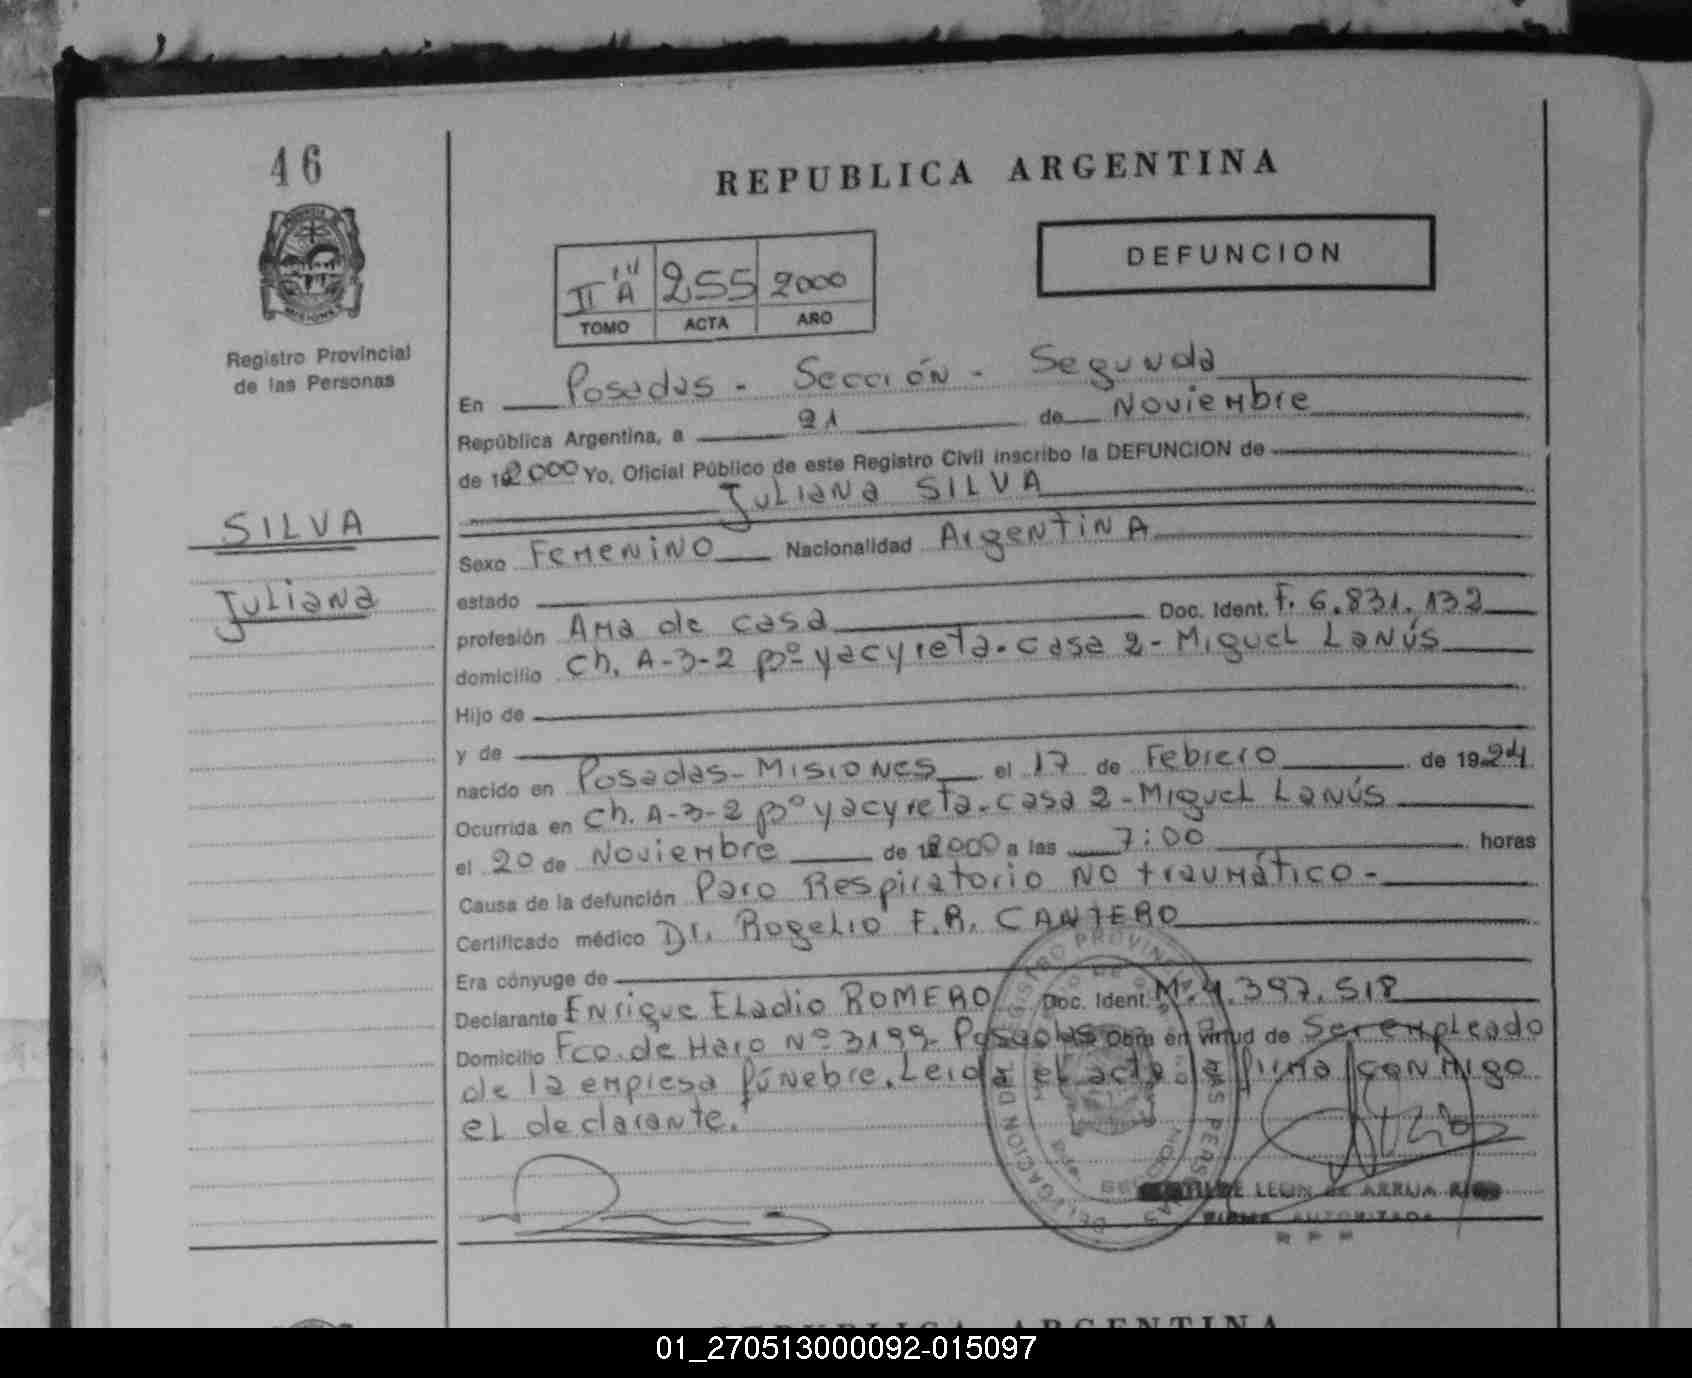 46
REPUBLICA ARGENTINA
DEFUNCION
II A 255 2000
TOMO ACTA AÑO
Registro Provincial
de las Personas
SILVA
Juliana
En Posadas - Sección - Segunda
República Argentina, a 21 de Noviembre
de 2000 Yo, Oficial Público de este Registro Civil inscribo la DEFUNCION de
Juliana SILVA
Sexo Femenino Nacionalidad Argentina
estado
profesión Ama de casa Doc. Ident. F. 6.831.132
domicilio Ch. A-3-2 Bº yacyreta. casa 2 - Miguel Lanús
Hijo de
y de
nacido en Posadas - Misiones el 17 de Febrero de 1924
Ocurrida en Ch. A-3-2 Bº yacyreta. casa 2 - Miguel Lanús
el 20 de Noviembre de 2000 a las 7:00 horas
Causa de la defunción Paro Respiratorio NO traumático -
Certificado médico Dr. Rogelio F.R. CANTERO
Era cónyuge de
Declarante Enrique Eladio ROMERO Doc. Ident. M. 4.397.518
Domicilio Fco. de Haro Nº 3199- Posadas Obra en virtud de Ser empleado
de la empresa fúnebre. Leida el acta la firma conmigo
el declarante.
LEON DE ARRUA
FIRMA AUTORIZADA
REPUBLICA ARGENTINA
01_270513000092-015097